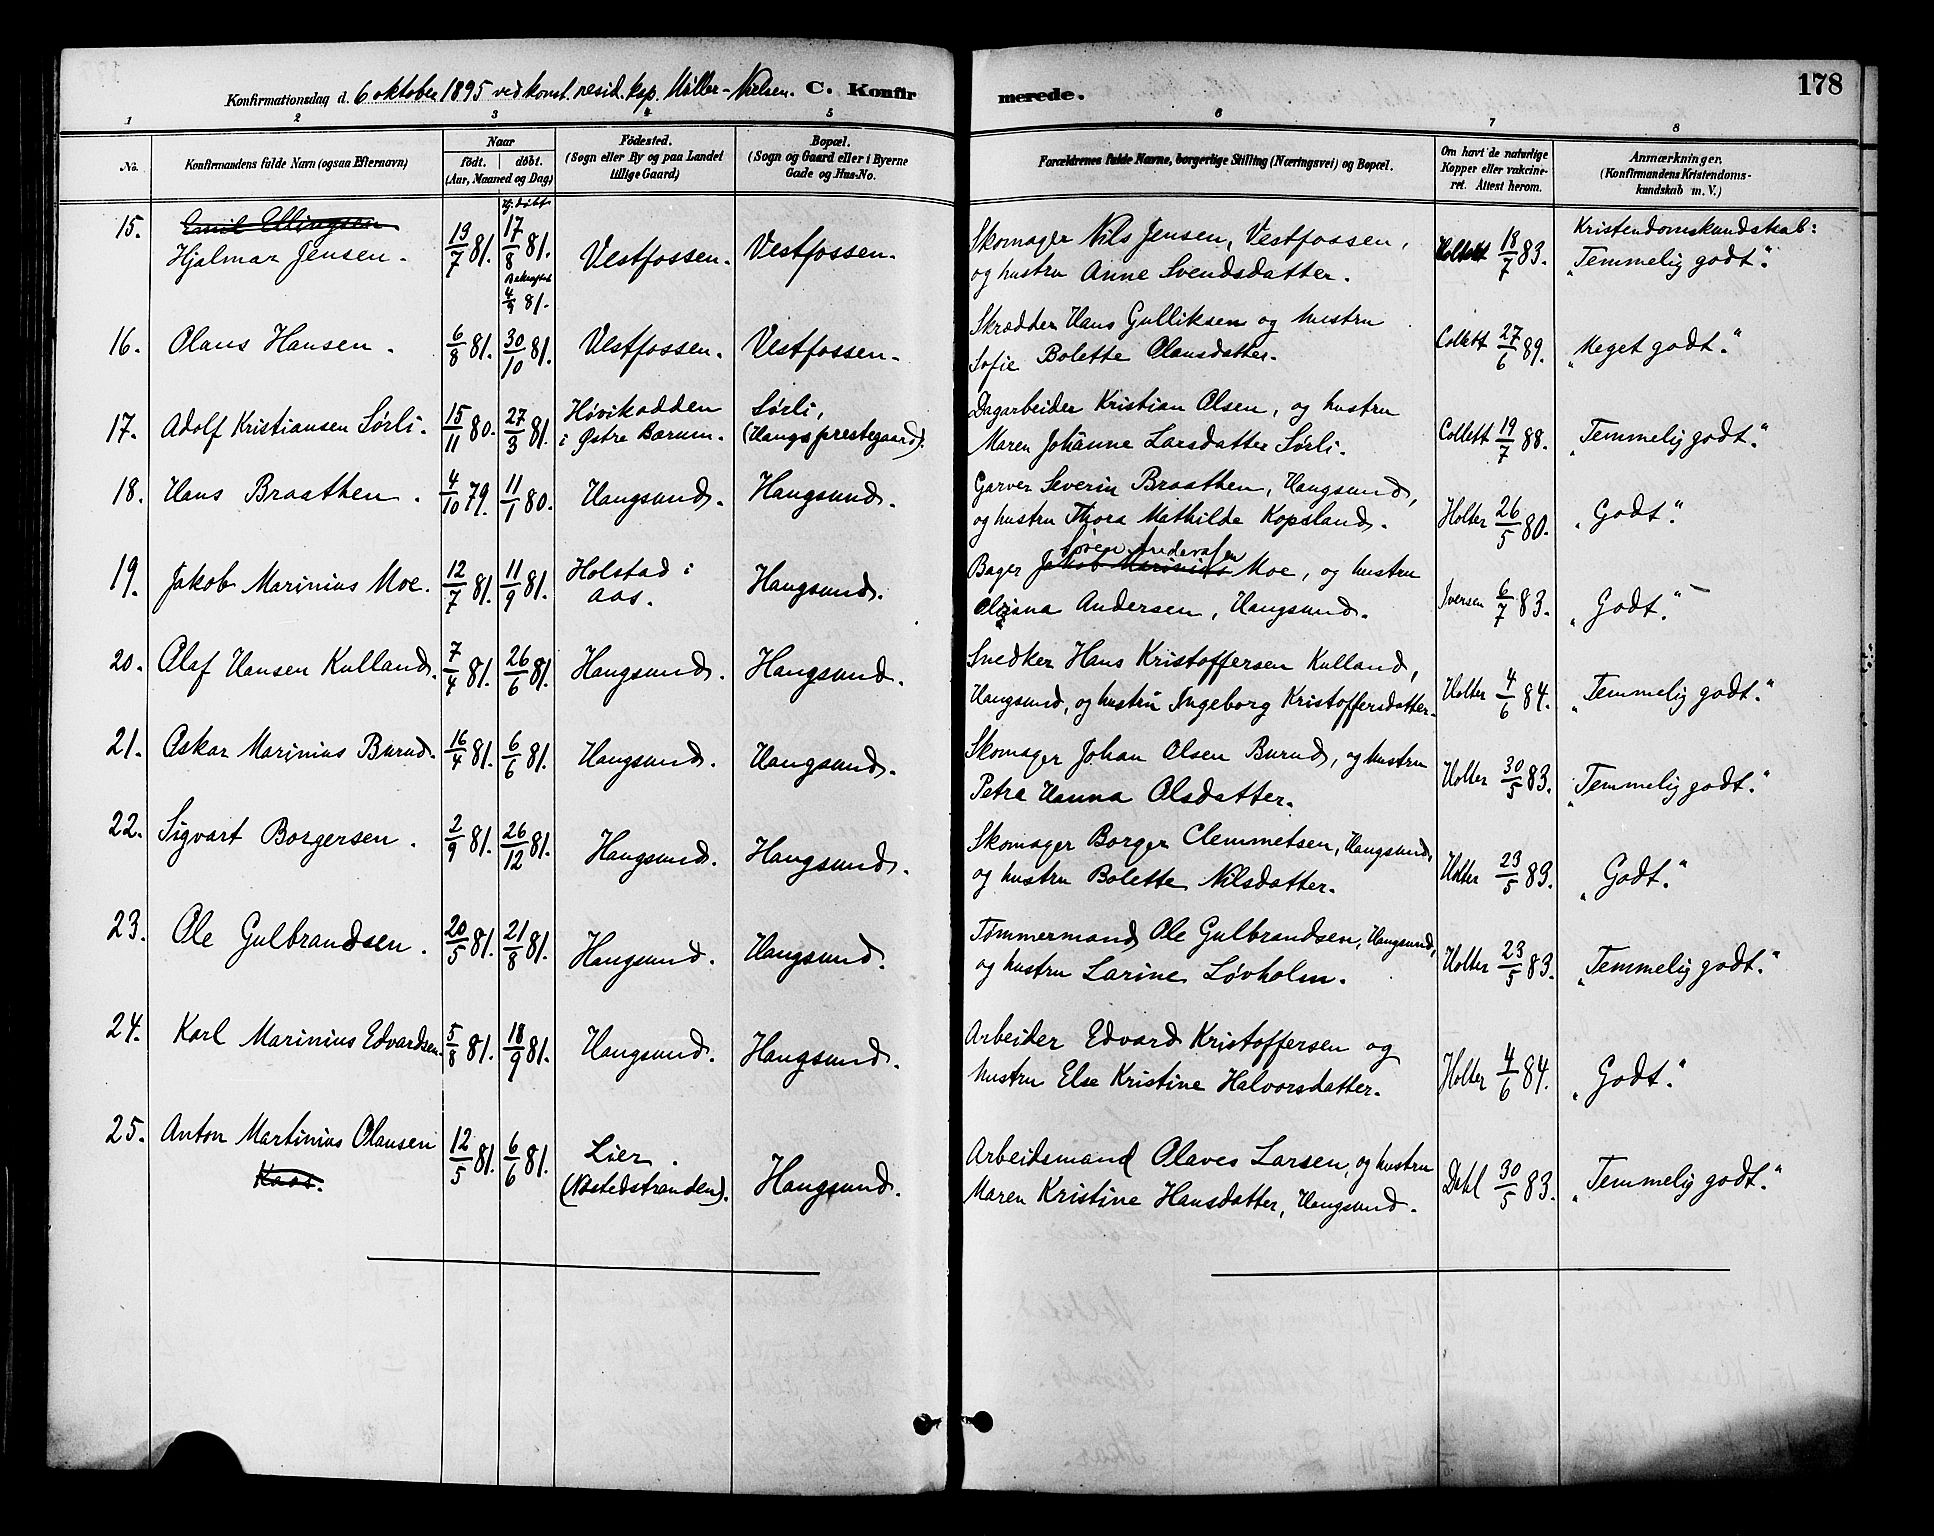 178
Konfirmationsdag d. 6 oktober 1895 ved konst. resid. kap. Møller-Nielsen. C. Konfirmerede.
1 2 3 4 5 6 7 8
No. Konfirmandens fulde Navn (ogsaa Efternavn) Naar født. døbt. (Aar, Maaned og Dag) Fødested. (Sogn eller By og paa Landet tillige Gaard) Bopæl. (Sogn og Gaard eller i Byerne Gade og Hus-No. Forældrenes fulde Navne, borgerlige Stilling (Næringsvei) og Bopæl. Om havt de naturlige Kopper eller vakcineret. Attest herom. Anmærkninger. (Konfirmandens Kristendomskundskab m. V.)
15. Emil Ellingsen Hj. døbt Kristendomskundskab:
Hjalmar Jensen. 19/7 81. 17/8 81. 4/9 81. Vestfossen. Vestfossen. Skomager Nils Jensen, Vestfossen, og hustru Anne Svendsdatter. 18/7 83. "Temmelig godt."
16. Olaus Hansen. 6/8 81. 30/10 81. Vestfossen. Vestfossen. Skrædder Hans Gulliksen og hustru Sofie Bolette Olausdatter. Collett 27/6 89. "Meget godt."
17. Adolf Kristiansen Sørli. 15/11 80. 27/3 81. Høvikodden i Østre Bærum. Sørli, (Haugs prestegaard). Dagarbeider Kristian Olsen, og hustru Maren Johanne Larsdatter Sørli. Collett 19/7 88. "Temmelig godt."
18. Hans Braathen. 4/10 79. 11/1 80. Haugsund. Haugsund. Garver Severin Braathen, Haugsund, og hustru Thora Mathilde Kopsland. Holter 26/5 80. "Godt."
19. Jakob Marinius Moe. 12/7 81. 11/9 81. Holstad i Aas. Haugsund. Bager Jakob Marinius Søren Andersen Moe, og hustru Andersen, Haugsund. Iversen 6/7 83. "Godt."
20. Olaf Hansen Kulland. 7/4 81. 26/6 81. Haugsund. Haugsund. Snedker Hans Kristoffersen Kulland, Haugsund, og hustru Ingeborg Kristoffersdatter. Holter 4/6 84. "Temmelig godt."
21. Oskar Marinius Burud. 16/4 81. 6/6 81. Haugsund. Haugsund. Skomager Johan Olsen Burud, og hustru Petra Hanna Olsdatter. Holter 30/5 83. "Temmelig godt."
22. Sigvart Borgersen. 2/9 81. 26/12 81. Haugsund. Haugsund. Skomager Borger Clemmetsen, Haugsund, og hustru Bolette Nilsdatter. Holter 23/5 83. "Godt."
23. Ole Gulbrandsen. 20/5 81. 21/8 81. Haugsund. Haugsund. Tømmermand Ole Gulbrandsen, Haugsund, og hustru Larine Løvholm. Holter 23/5 83. "Temmelig godt."
24. Karl Marinius Edvardsen. 5/8 81. 18/9 81. Haugsund. Haugsund. Arbeider Edvard Kristoffersen og hustru Else Kristine Halvorsdatter. Holter 4/6 84. "Godt."
25. Anton Martinius Olausen Kaas. 12/5 81. 6/6 81. Lier. (Nøstedstranden). Haugsund. Arbeidsmand Olaves Larsen, og hustru Maren Kristine Hansdatter, Haugsund. Dahl 30/5 83. "Temmelig godt."